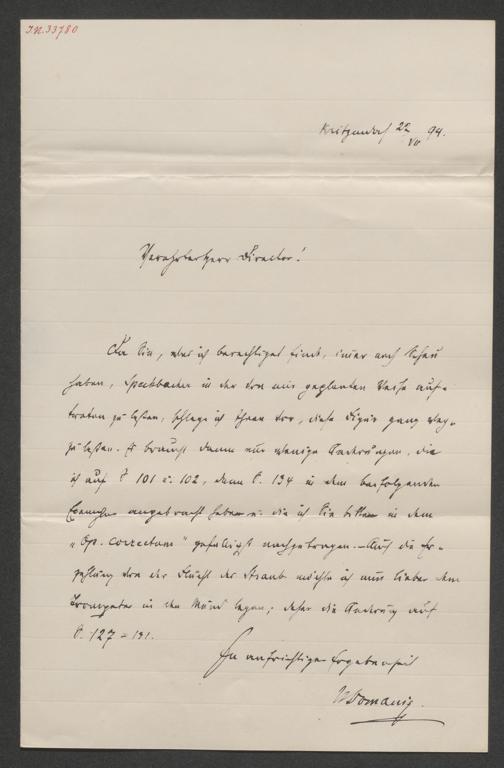 I.N. 33780
Kritzendorf 22/VII 94.
Verehrter Herr Director!
Da Sie, was ich berechtigt finde, immer noch Scheu
haben, Speckbacher in der von mir geplanten Weise auf-
treten zu laßen, schlage ich Ihnen vor, diese Figur ganz weg-
zulaßen. Es braucht dann nur wenige Änderungen, die
ich auf S 101 u. 102, dann S. 134 in dem beifolgenden
Exemplar angebracht habe u. die ich Sie bitte in dem
„Op. correctum" gefälligst nachzutragen. – Auch die Er-
zählung von der Flucht der Straub möchte ich nun lieber dem
Trompeter in den Mund legen; daher die Änderung auf
S. 127 – 131.
In aufrichtiger Ergebenheit
KDomanig.